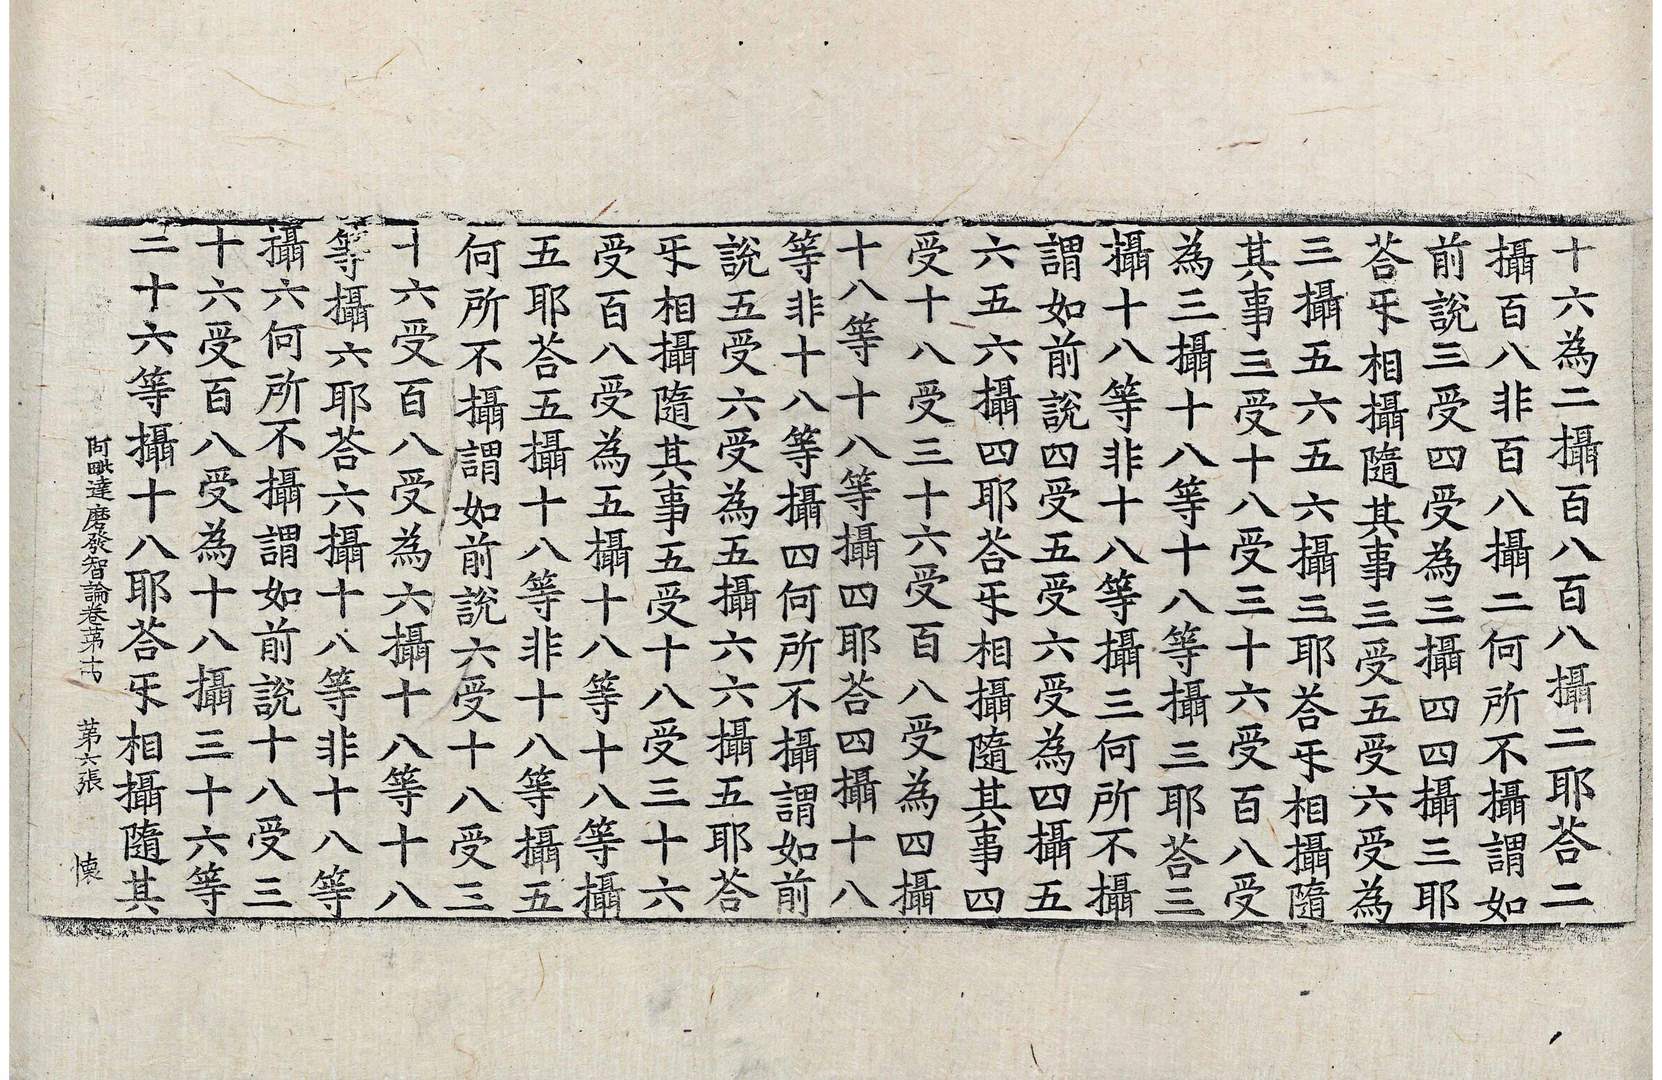 十六為二攝百八百八攝二耶荅二
攝百八非百八攝二何所不攝謂如
前說三受四受為三攝四四攝三耶
荅㸦相攝隨其事三受五受六受為
三攝五六五六攝三耶荅㸦相攝隨
其事三受十八受三十六受百八受
為三攝十八等十八等攝三耶荅三
攝十八等非十八等攝三何所不攝
謂如前說四受五受六受為四攝五
六五六攝四耶荅㸦相攝隨其事四
受十八受三十六受百八受為四攝
十八等十八等攝四耶荅四攝十八
等非十八等攝四何所不攝謂如前
說五受六受為五攝六六攝五耶荅
㸦相攝隨其事五受十八受三十六
受百八受為五攝十八等十八等攝
五耶荅五攝十八等非十八等攝五
何所不攝謂如前說六受十八受三
十六受百八受為六攝十八等十八
等攝六耶荅六攝十八等非十八等
攝六何所不攝謂如前說十八受三
十六受百八受為十八攝三十六等
三十六等攝十八耶荅㸦相攝隨其
阿毗達磨發智論卷苐十四 第六張 懷